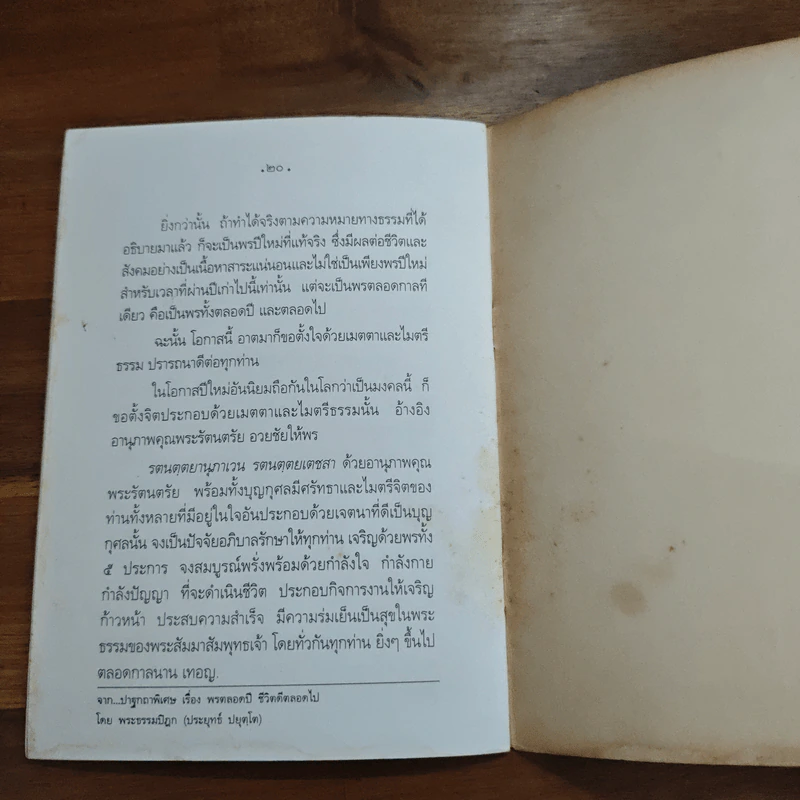 .๒๐.
ยิ่งกว่านั้น ถ้าทำได้จริงตามความหมายทางธรรมที่ได้
อธิบายมาแล้ว ก็จะเป็นพรปีใหม่ที่แท้จริง ซึ่งมีผลต่อชีวิตและ
สังคมอย่างเป็นเนื้อหาสาระแน่นอนและไม่ใช่เป็นเพียงพรปีใหม่
สำหรับเวลาที่ผ่านปีเก่าไปนี้เท่านั้น แต่จะเป็นพรตลอดกาลที
เดียว คือเป็นพรทั้งตลอดปี และตลอดไป
ฉะนั้น โอกาสนี้ อาตมาก็ขอตั้งใจด้วยเมตตาและไมตรี
ธรรม ปรารถนาดีต่อทุกท่าน
ในโอกาสปีใหม่อันนิยมถือกันในโลกว่าเป็นมงคลนี้ ก็
ขอตั้งจิตประกอบด้วยเมตตาและไมตรีธรรมนั้น อ้างอิง
อานุภาพคุณพระรัตนตรัย อวยชัยให้พร
รตนตฺตยานุภาเวน รตนตฺตยเตชสา ด้วยอานุภาพคุณ
พระรัตนตรัย พร้อมทั้งบุญกุศลมีศรัทธาและไมตรีจิตของ
ท่านทั้งหลายที่มีอยู่ในใจอันประกอบด้วยเจตนาที่ดีเป็นบุญ
กุศลนั้น จงเป็นปัจจัยอภิบาลรักษาให้ทุกท่าน เจริญด้วยพรทั้ง
๕ ประการ จงสมบูรณ์พรั่งพร้อมด้วยกำลังใจ กำลังกาย
กำลังปัญญา ที่จะดำเนินชีวิต ประกอบกิจการงานให้เจริญ
ก้าวหน้า ประสบความสำเร็จ มีความร่มเย็นเป็นสุขในพระ
ธรรมของพระสัมมาสัมพุทธเจ้า โดยทั่วกันทุกท่าน ยิ่งๆ ขึ้นไป
ตลอดกาลนาน เทอญ.
จาก...ปาฐกถาพิเศษ เรื่อง พรตลอดปี ชีวิตดีตลอดไป
โดย พระธรรมปิฎก (ประยุทธ์ ปยุตฺโต)